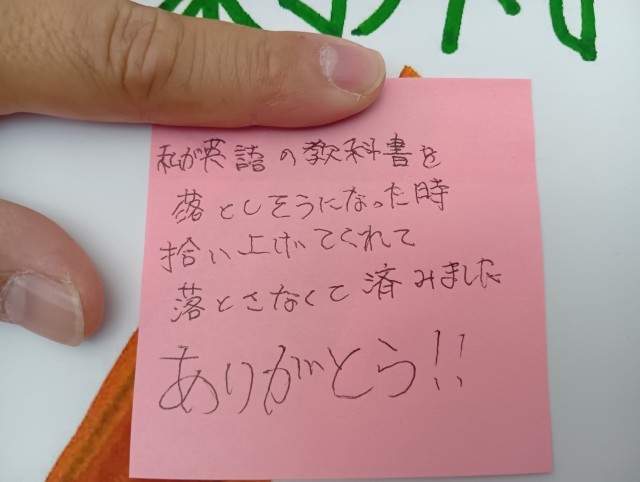 私が英語の教科書を
落としそうになった時
拾い上げてくれて
落とさなくて済みました
ありがとう!!